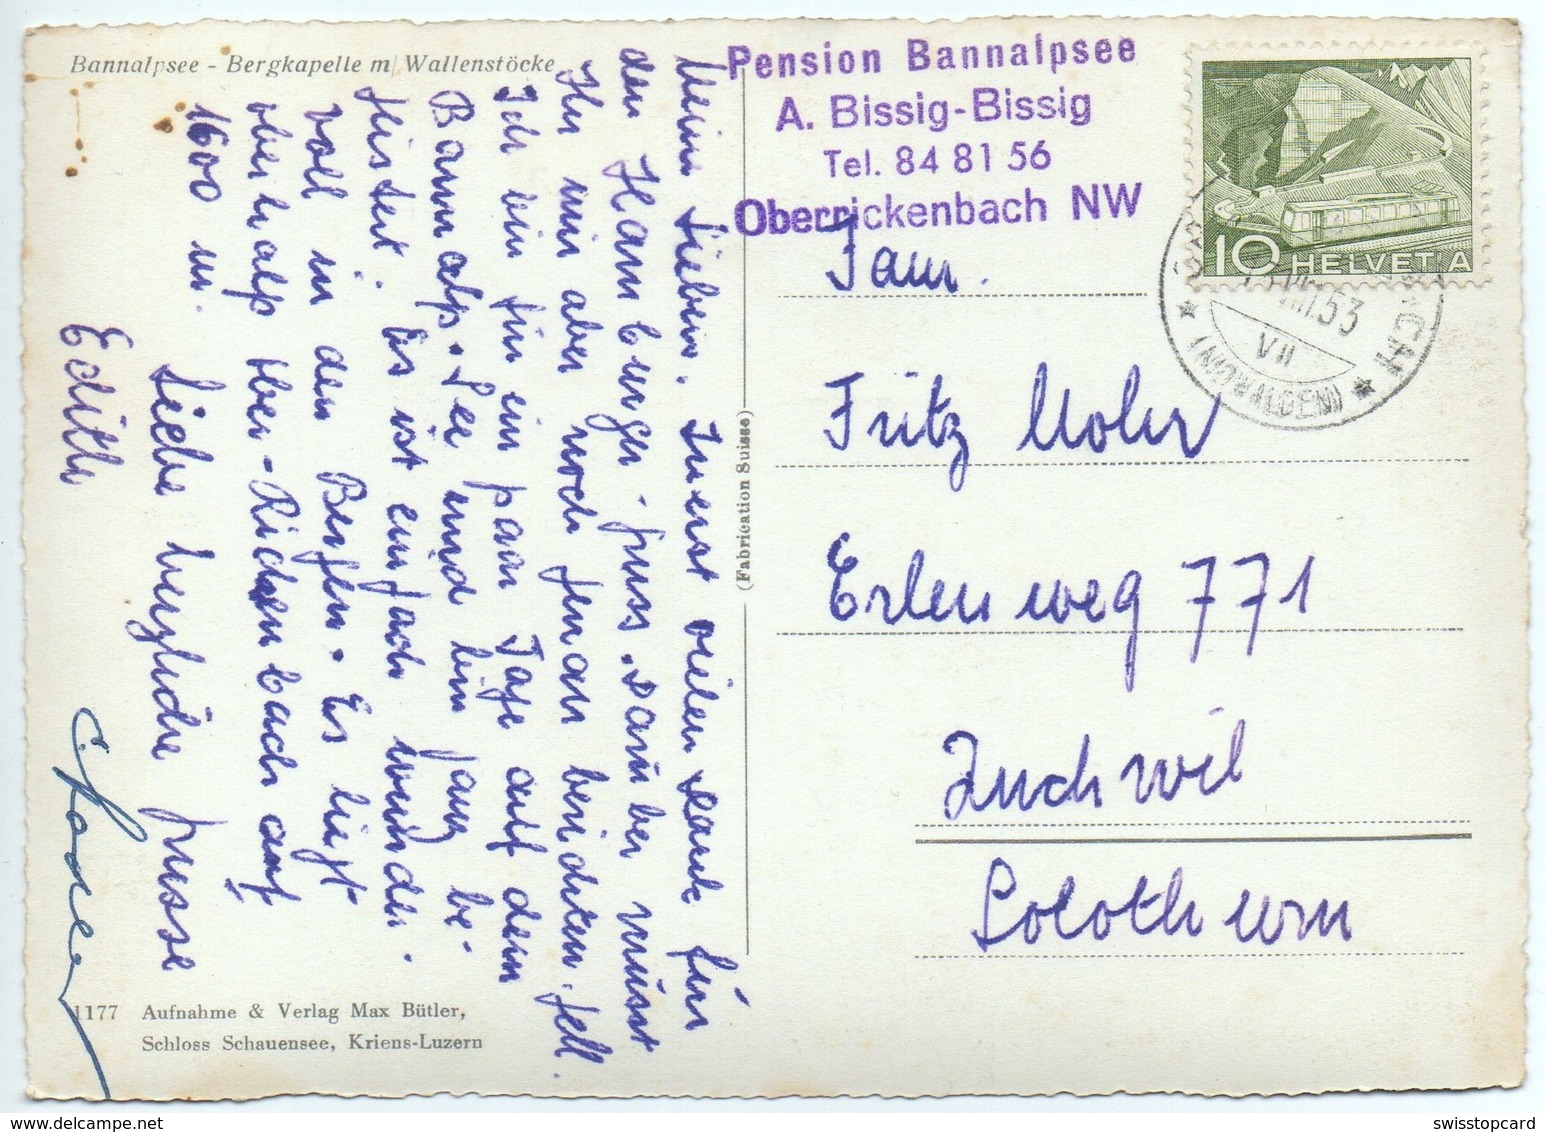 Bannalpsee - Bergkapelle m/ Wallenstöcke
Pension Bannalpsee
A. Bissig-Bissig
Tel. 84 81 56
Oberrickenbach NW
10 HELVETIA
VIII.53
VII
(NIDWALDEN)
Fam.
Fritz Mohr
Erlenweg 771
Zuchwil
Solothurn
Meine Lieben. Zuerst vielen Dank für
den Hamburger-gruss. Darüber müsst
Ihr mir aber noch genau berichten. gell.
Ich bin für ein paar Tage auf dem
Bannalp-See und bin ganz be-
geistert. Es ist einfach wunder-
voll in den Bergen. Es liegt
oberhalp Ober-Rickenbach auf
1600 m.
Liebe herzliche grüsse
Edith
(Fabrication Suisse)
1177 Aufnahme & Verlag Max Bütler,
Schloss Schauensee, Kriens-Luzern
swisstopcard www.delcampe.net